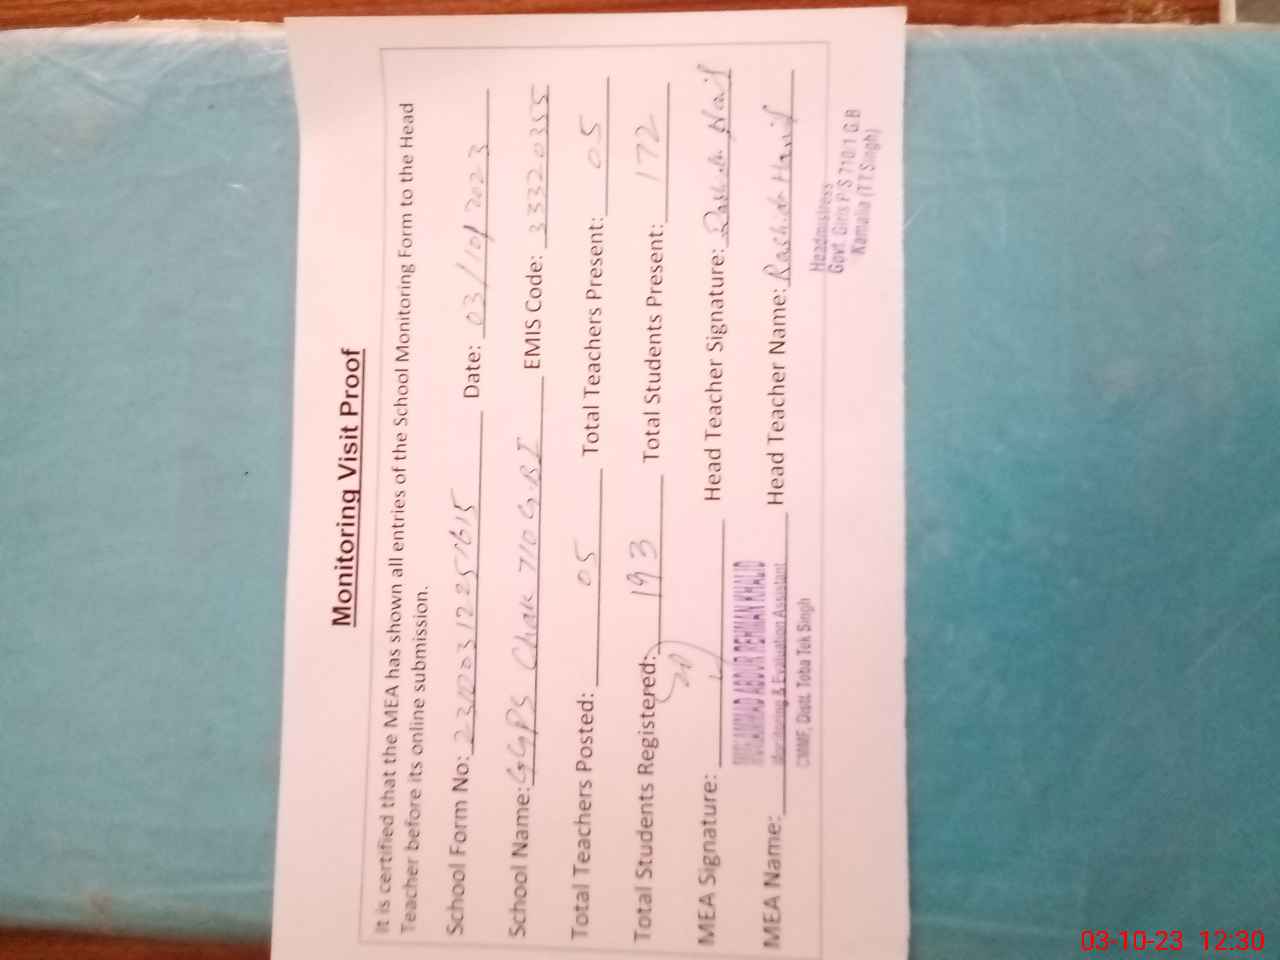 Monitoring Visit Proof
It is certified that the MEA has shown all entries of the School Monitoring Form to the Head
Teacher before its online submission.
School Form No: 231003122251615 Date: 03/10/2023
School Name: GGPS Chak 710 G.B I EMIS Code: 33320355
Total Teachers Posted: 05 Total Teachers Present: 05
Total Students Registered: 193 Total Students Present: 172
MEA Signature: Head Teacher Signature:
MUHAMMAD ABDUR REHMAN KHALID
MEA Name: Monitoring & Evaluation Assistant Head Teacher Name: Rashida Hanif
CMMF, Distt. Toba Tek Singh
Headmistress
Govt. Girls P/S 710/1 G.B
Kamalia (T.T.Singh)
03-10-23 12:30